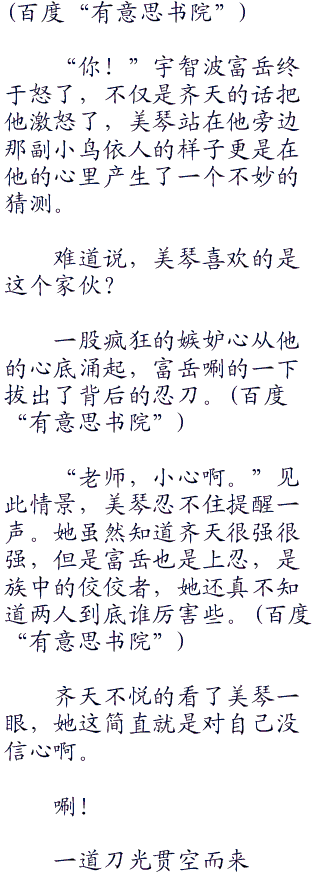 (百度“有意思书院”)
“你！”宇智波富岳终
于怒了，不仅是齐天的话把
他激怒了，美琴站在他旁边
那副小鸟依人的样子更是在
他的心里产生了一个不妙的
猜测。
难道说，美琴喜欢的是
这个家伙？
一股疯狂的嫉妒心从他
的心底涌起，富岳唰的一下
拔出了背后的忍刀。(百度
“有意思书院”)
“老师，小心啊。”见
此情景，美琴忍不住提醒一
声。她虽然知道齐天很强很
强，但是富岳也是上忍，是
族中的佼佼者，她还真不知
道两人到底谁厉害些。(百度
“有意思书院”)
齐天不悦的看了美琴一
眼，她这简直就是对自己没
信心啊。
唰！
一道刀光贯空而来